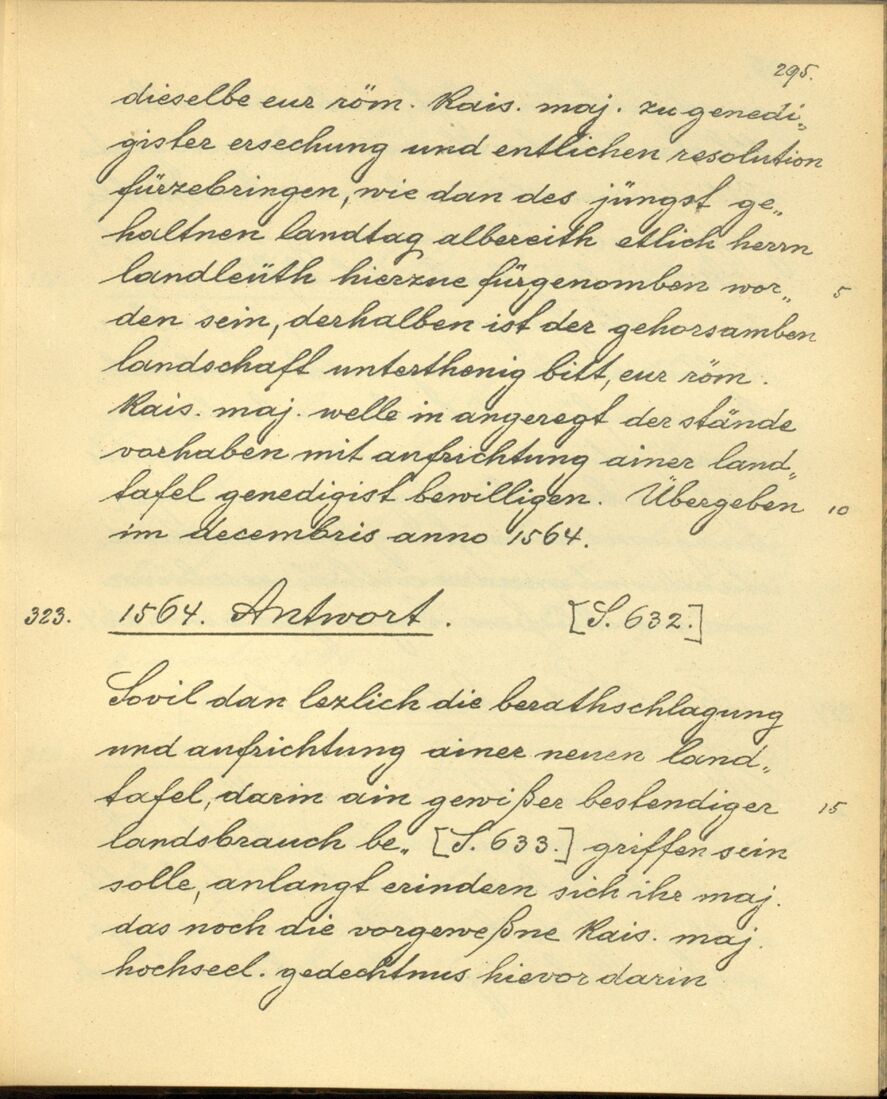 295.
dieselbe eur röm. kais. maj. zu genedi„
gister ersechung und entlichen resolution
fürzebringen, wie dan des jüngst ge„
haltnen landtag albereith etlich herrn
landleüth hierzue fürgenomben wor„ 5
den sein, derhalben ist der gehorsamben
landschaft unterthenig bitt, eur röm.
kais. maj. welle in angeregt der stände
vorhaben mit aufrichtung ainer land„
tafel genedigist bewilligen. Übergeben 10
im decembris anno 1564.
323. 1564. Antwort. [S. 632.]
Sovil dan lezlich die berathschlagung
und aufrichtung ainer neuen land„
tafel, darin ain gewißer bestendiger 15
landsbrauch be„ [S. 633.] griffen sein
solle, anlangt erindern sich ihr maj.
das noch die vorgeweßne kais. maj.
hochseel. gedechtnus hievor darin